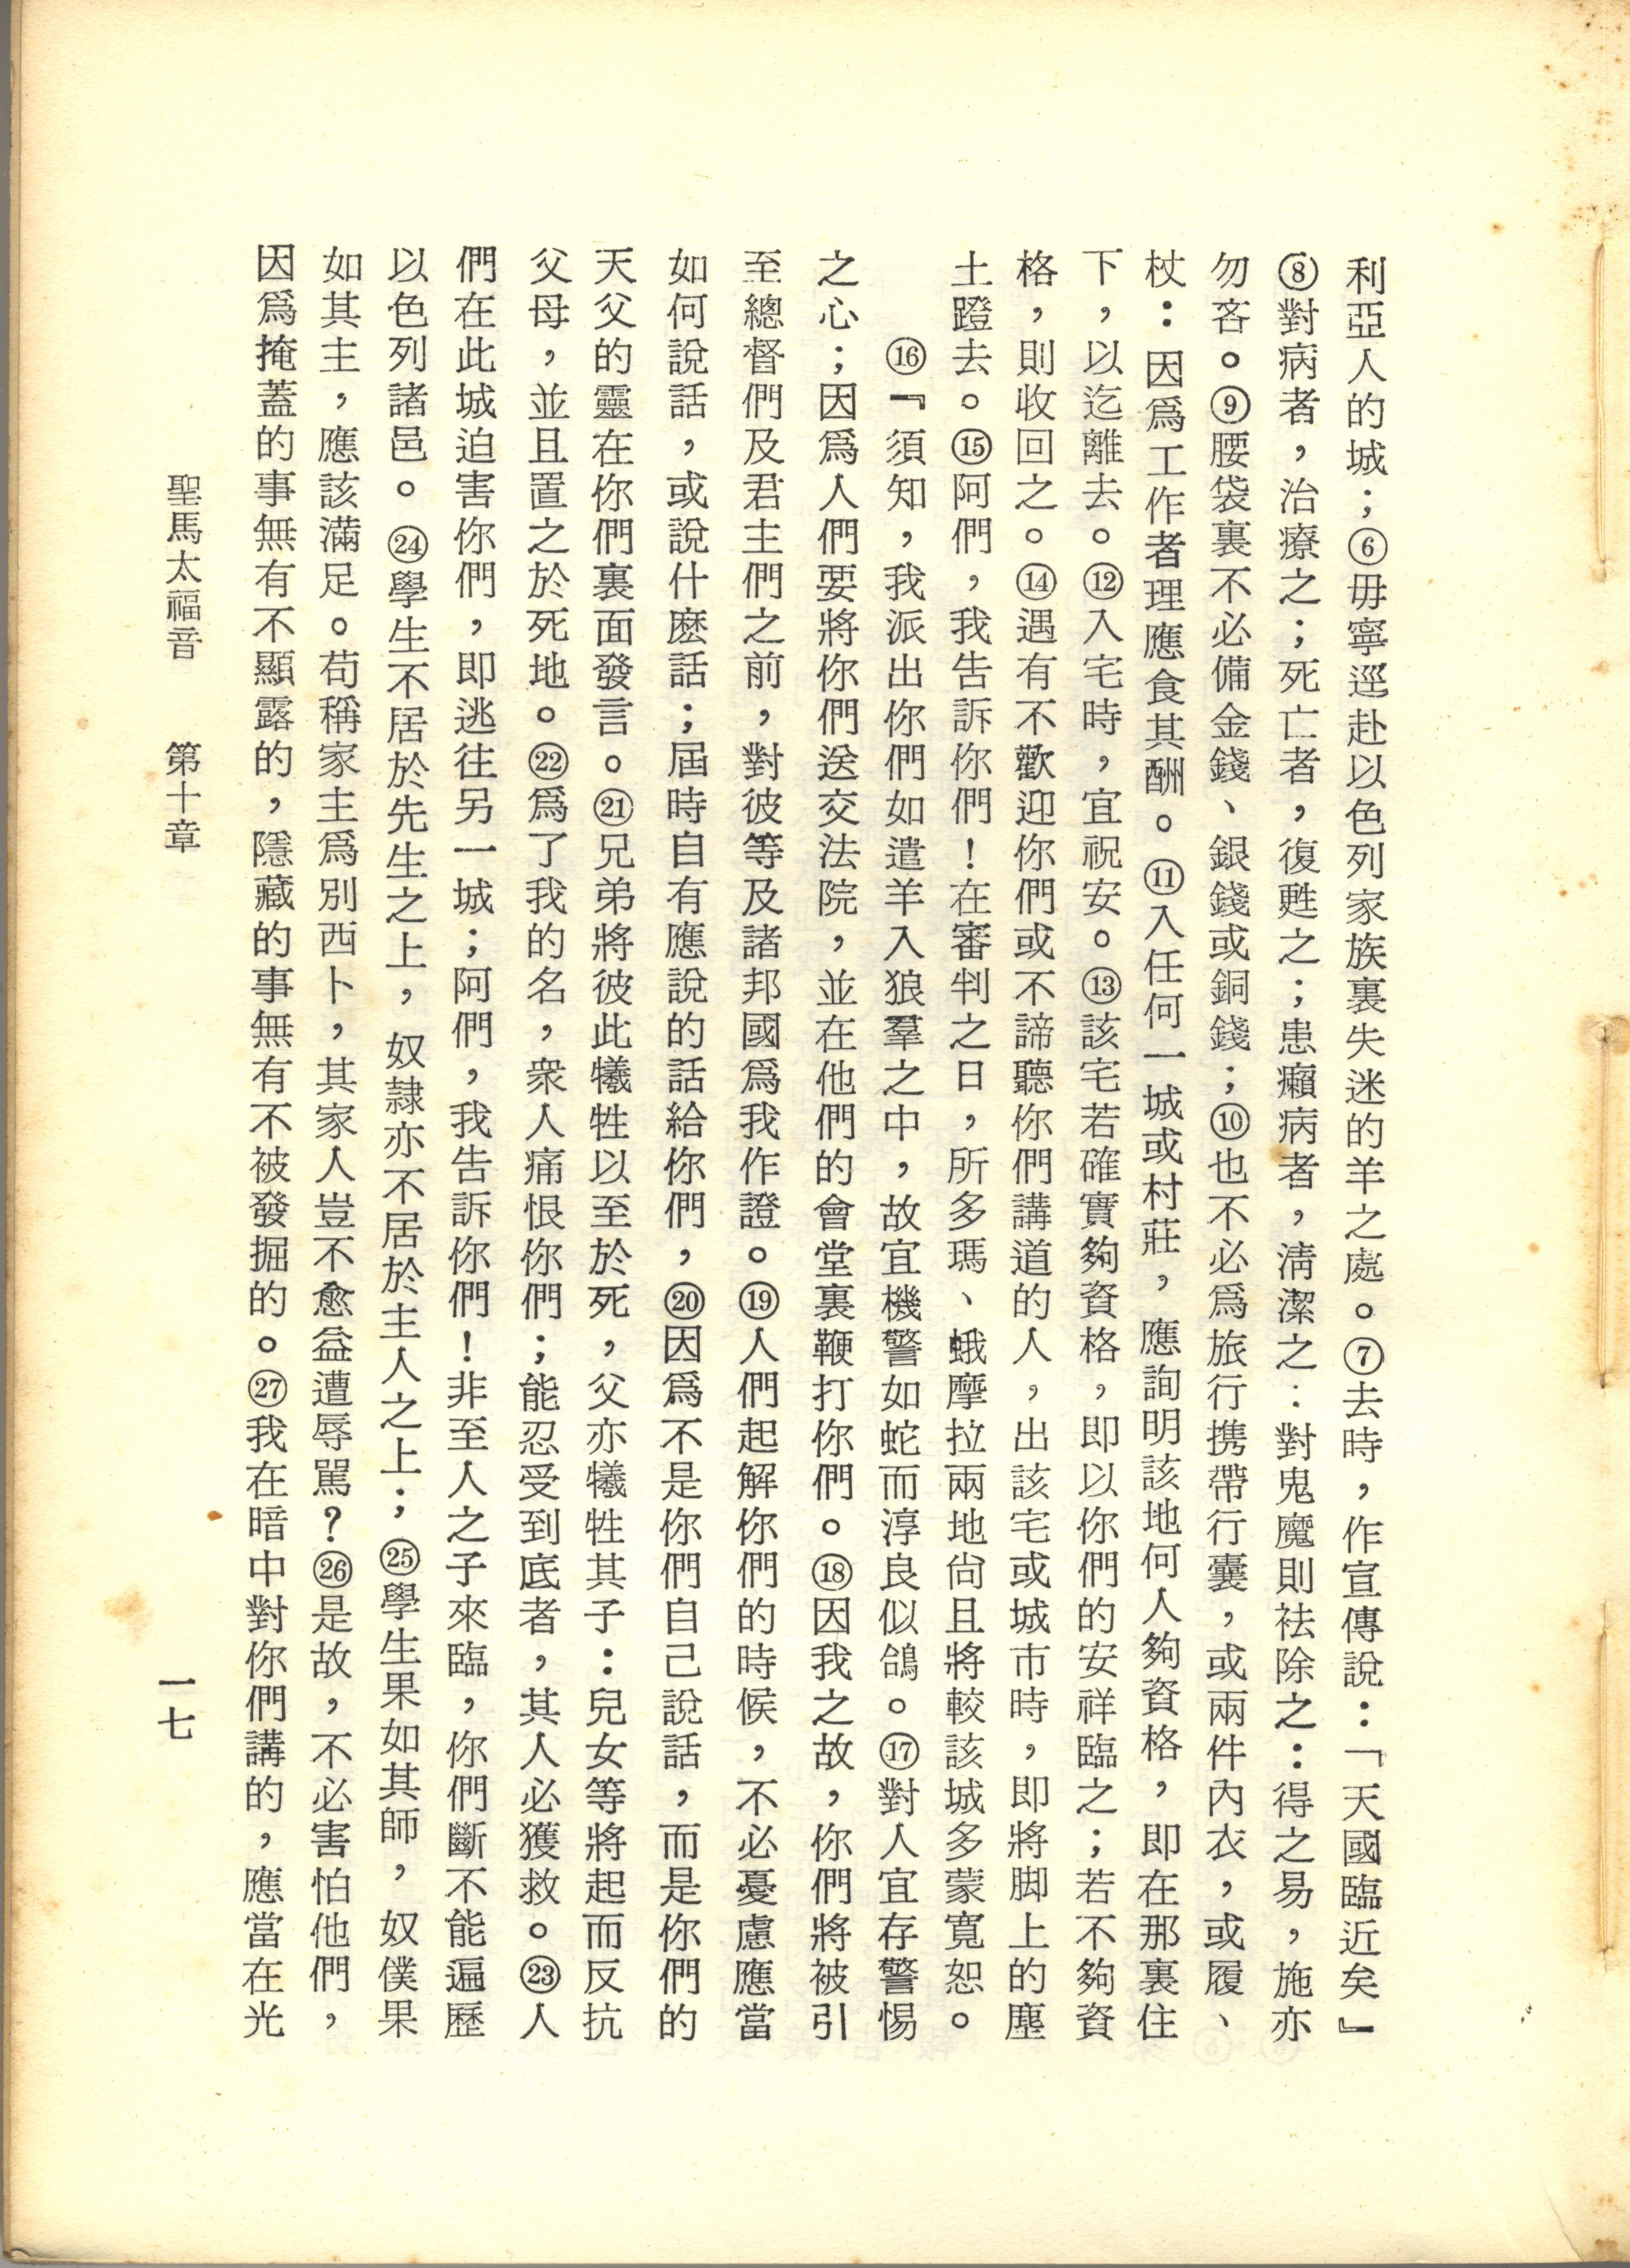 利亞人的城；⑥毋寧逕赴以色列家族裏失迷的羊之處。⑦去時，作宣傳說：「天國臨近矣』
⑧對病者，治療之；死亡者，復甦之；患癩病者，淸潔之：對鬼魔則祛除之：得之易，施亦
勿吝。⑨腰袋裏不必備金錢、銀錢或銅錢；⑩也不必爲旅行携帶行囊，或兩件內衣，或履、
杖：因爲工作者理應食其酬。⑪入任何一城或村莊，應詢明該地何人夠資格，即在那裏住
下，以迄離去。⑫入宅時，宜祝安。⑬該宅若確實夠資格，即以你們的安祥臨之；若不夠資
格，則收回之。⑭遇有不歡迎你們或不諦聽你們講道的人，出該宅或城市時，即將脚上的塵
土蹬去。⑮阿們，我告訴你們！在審判之日，所多瑪、蛾摩拉兩地尙且將較該城多蒙寬恕。
⑯『須知，我派出你們如遣羊入狼羣之中，故宜機警如蛇而淳良似鴿。⑰對人宜存警惕
之心；因爲人們要將你們送交法院，並在他們的會堂裏鞭打你們。⑱因我之故，你們將被引
至總督們及君主們之前，對彼等及諸邦國爲我作證。⑲人們起解你們的時候，不必憂慮應當
如何說話，或說什麽話；屆時自有應說的話給你們，⑳因爲不是你們自己說話，而是你們的
天父的靈在你們裏面發言。㉑兄弟將彼此犧牲以至於死，父亦犧牲其子：兒女等將起而反抗
父母，並且置之於死地。㉒爲了我的名，衆人痛恨你們；能忍受到底者，其人必獲救。㉓人
們在此城迫害你們，即逃往另一城；阿們，我告訴你們！非至人之子來臨，你們斷不能遍歷
以色列諸邑。㉔學生不居於先生之上，奴隸亦不居於主人之上；㉕學生果如其師，奴僕果
如其主，應該滿足。苟稱家主爲別西卜，其家人豈不愈益遭辱駡？㉖是故，不必害怕他們，
因爲掩蓋的事無有不顯露的，隱藏的事無有不被發掘的。㉗我在暗中對你們講的，應當在光
聖馬太福音　第十章
一七